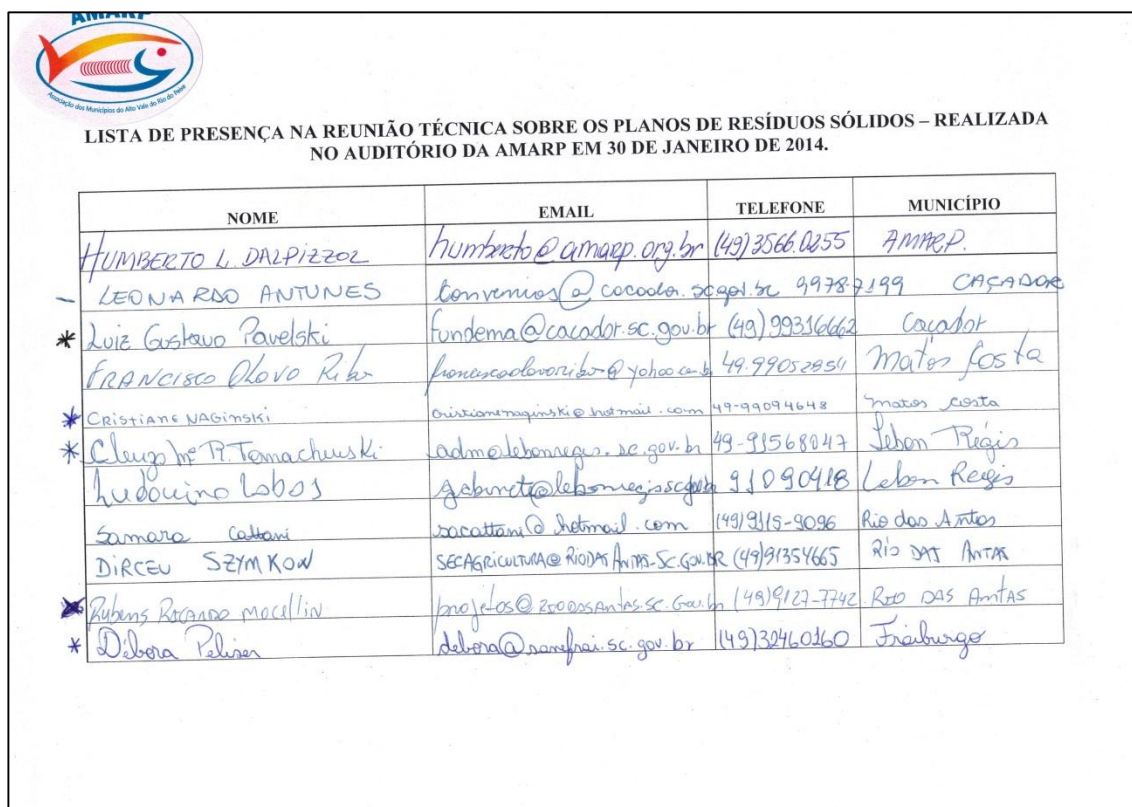 AMARP
Associação dos Municípios do Alto Vale do Rio do Peixe
LISTA DE PRESENÇA NA REUNIÃO TÉCNICA SOBRE OS PLANOS DE RESÍDUOS SÓLIDOS – REALIZADA
NO AUDITÓRIO DA AMARP EM 30 DE JANEIRO DE 2014.
NOME EMAIL TELEFONE MUNICÍPIO
HUMBERTO L. DALPIZZOL humberto@amarp.org.br (49)3566.0255 AMARP.
LEONARDO ANTUNES convenios@cacador.sc.gov.br 9978-7199 CAÇADOR
* Luiz Gustavo Pavelski fundema@cacador.sc.gov.br (49)99316662 Caçador
FRANCISCO OLOVO 49.99052954 Matos Costa
* CRISTIANE NAGINSKI cristianenaginski@hotmail.com 49-99094648 matos costa
* Cleuza Mª R. Tomacheuski adm@lebonregis.sc.gov.br 49-91568047 Lebon Régis
Ludovino Lobos 91090418 Lebon Regis
Samara Cattani sacattani@hotmail.com (49)9115-9096 Rio das Antas
DIRCEU SZYMKOW SECAGRICULTURA@RIODASANTAS-SC.GOV.BR (49)91354665 RIO DAS ANTAS
* Rubens Ricardo Mocellin projetos@riodosantas.sc.gov.br (49)9127-7742 RIO DAS ANTAS
* Débora Peliser debora@sanefrai.sc.gov.br (49)32460160 Fraiburgo